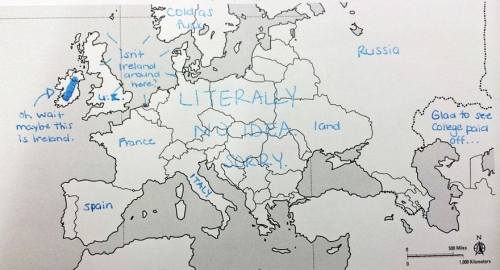 Cold as
Fuck
Isn't
Ireland
around
here?
Russia
U.K.
oh wait
maybe this
is Ireland.
LITERALLY
NO IDEA
SORRY.
land
Glad to see
College paid
off...
France
ITALY
Spain
N
0
500 Miles
0
1,000 Kilometers